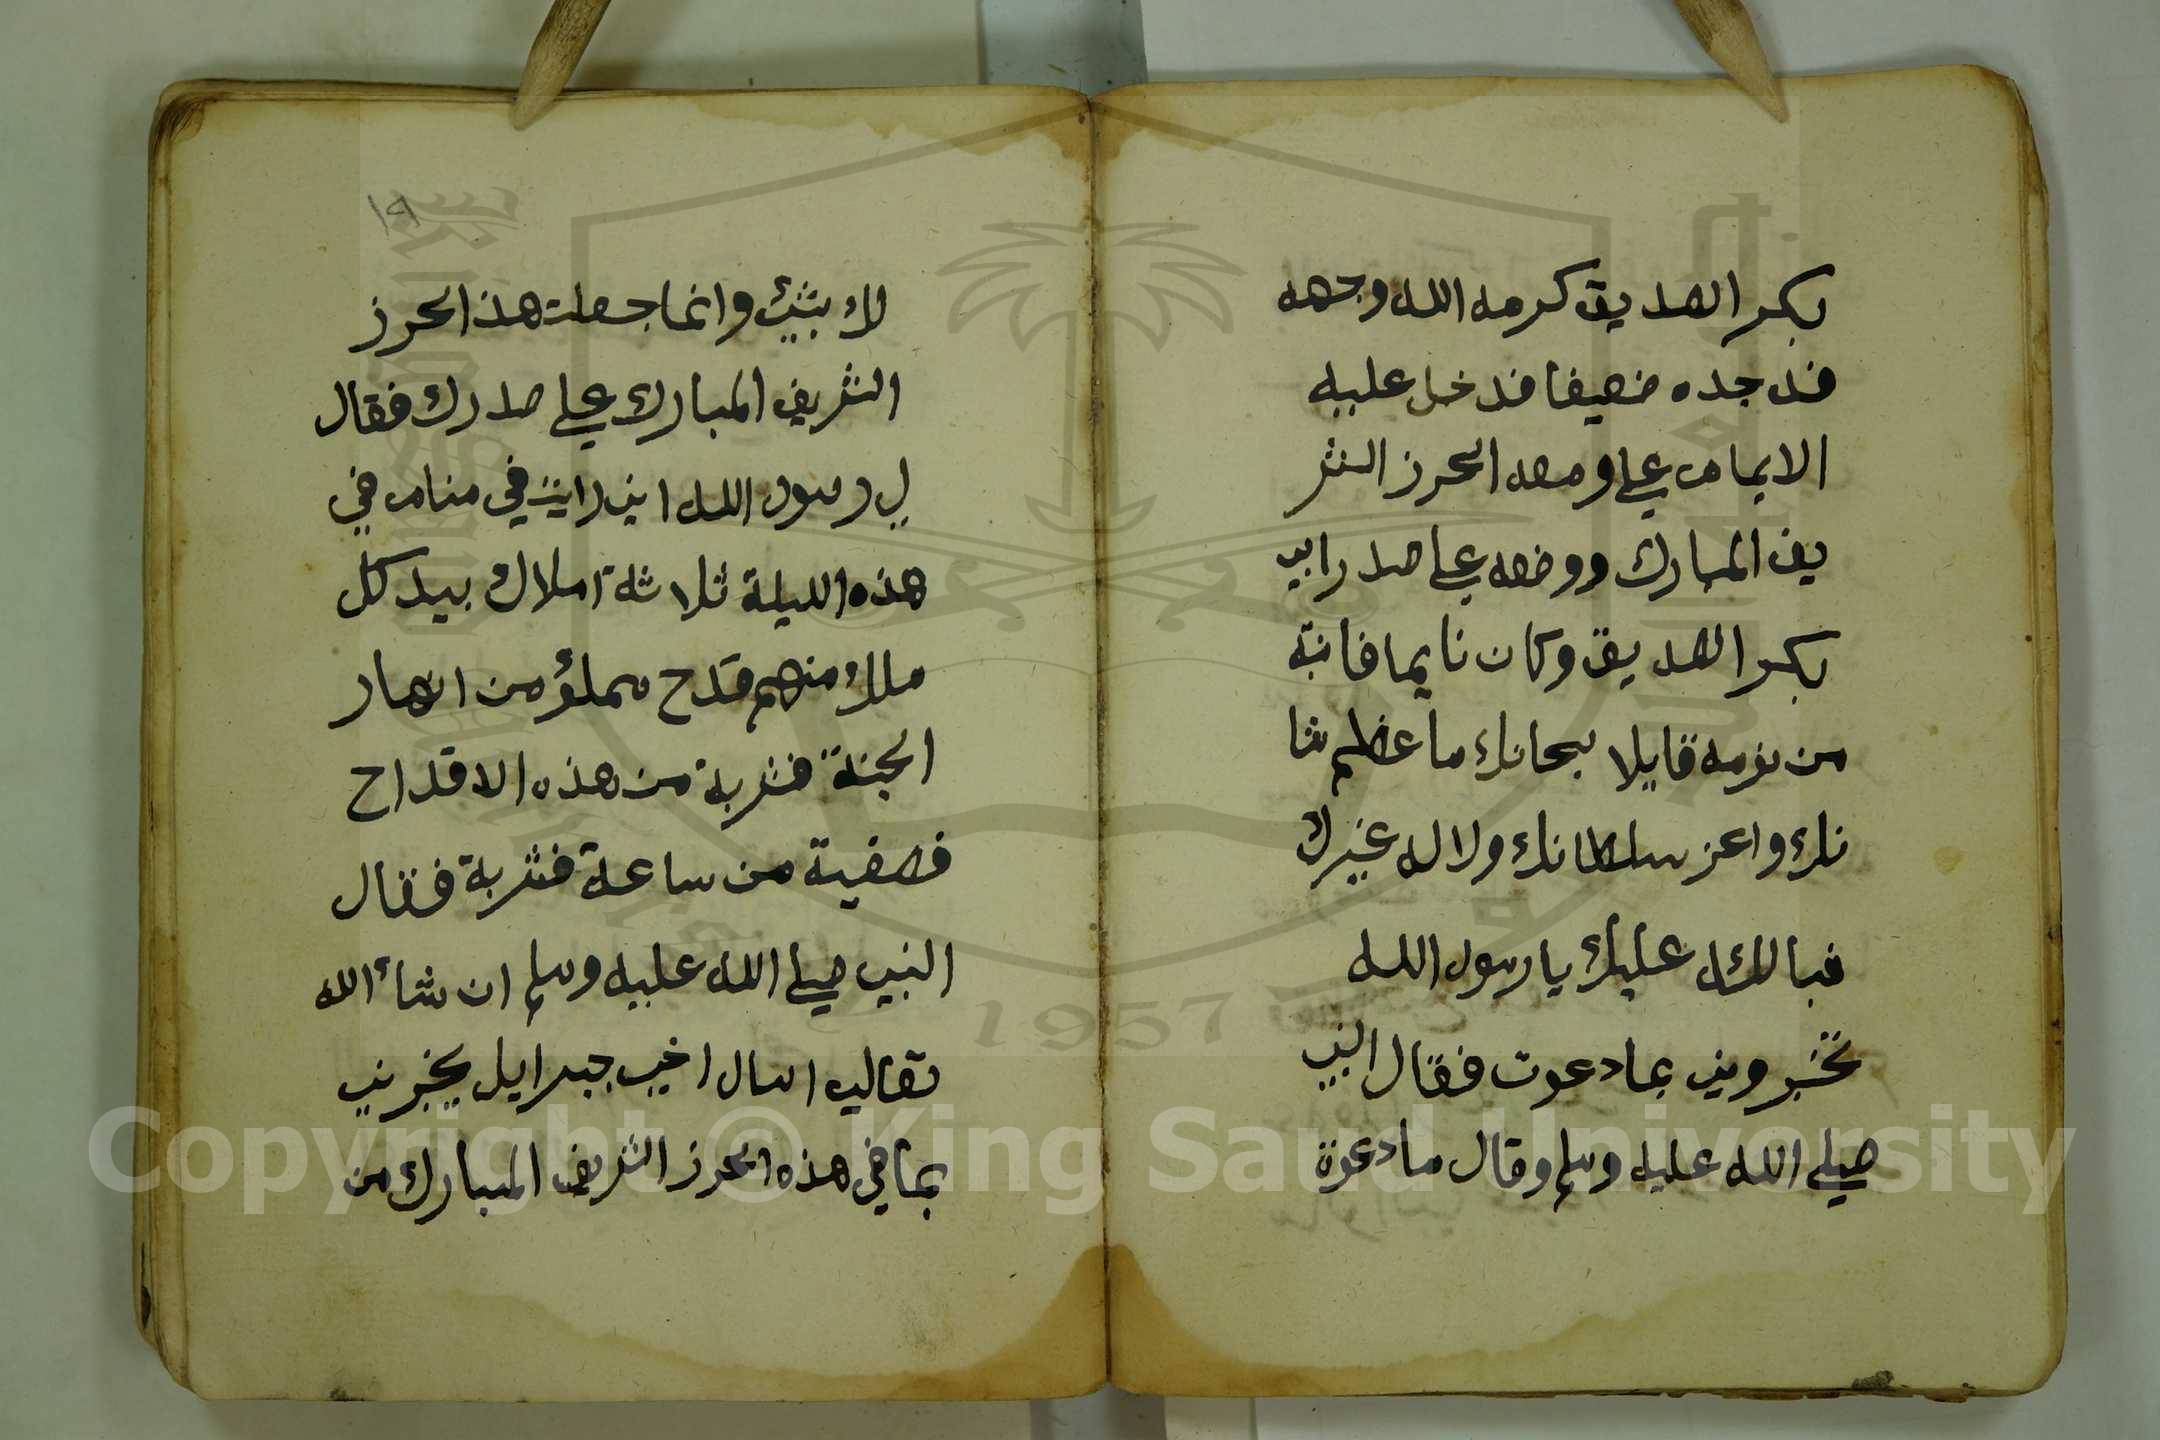 بكر الصديق كرمه الله وجهه
فدجده ضعيفا فدخل عليه
الايمام علي ومعه الحرز الشر
يف المبارك ووضعه علي صدر ابي
بكر الصديق وكان نايما فانتبة
من نومه قايلا سبحانك ما عظم شا
نك واعز سلطانك ولا اله غيرك
فبالله عليك يا رسول الله
تخبروني بما دعوت فقال النبي
صلي الله عليه وسلم وقال ما دعوة
١٩
لك بشئ وانما جعلت هذا الحرز
الشريف المبارك علي صدرك فقال
لي رسول الله اني رايت في منام في
هذه الليلة ثلاثة املاك بيد كل
ملك منهم قدح مملؤ من انهار
الجنة فشربة من هذه الاقداح
فعفية من ساعة فشربة فقال
النبي صلي الله عليه وسلم ان شاء الله
تعالي اسال اخي جبرايل يخبرني
بما في هذه الحرز الشريف المبارك من
Copyright © King Saud University
1957
King Saud University